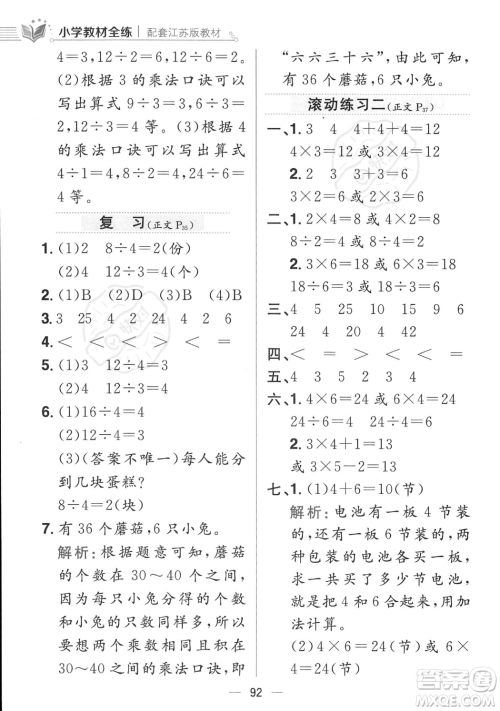 小学教材全练 配套江苏版教材
4=3，12÷3=4等。
(2)根据3的乘法口诀可以
写出算式9÷3=3，12÷
3=4，18÷3=6等。根据4
的乘法口诀可以写出算式
12÷4=3，8÷4=2，24÷4=
6等。
复 习(正文P35)
1. (1)2 8÷4=2(份)
(2)4 12÷3=4
2. (1)B (2)D (3)D (4)B
3. 3 25 24 24 4 2 6
4. < < > < = <
5. (1)3 12÷4=3
(2)4 12÷3=4
6. (1)16÷4=4
(2)12÷4=3
(3)(答案不唯一)每人能分
到几块蛋糕？
8÷4=2(块)
7. 有36个蘑菇，6只小兔。
解析：根据题意可知，蘑菇
的个数在30～40之间，根
据个数和小兔分得的个数
和小兔的只数同样多，所以
要想两个相同的数相乘在
30～40之间的乘法口诀，即
“六六三十六”，所以可知
有36个蘑菇，6只小兔。
滚动练习二(正文P37)
一、1. 3 4 4+4+4=12
4×3=12或3×4=12
2. 2 3 3+3=6
3×2=6或2×3=6
二、1. 5 4 2 4
2. 3×6=18或6×3=18
18÷3=6或18÷6=3
三、4 5 25 10 9 4 15
24 4 5
四、> < > < = <
五、4 3 5 4 2 3
六、1. 4×6=24或6×4=24
24÷6=4或24÷4=6
2. 3×5=15或5×3=15
15÷5=3或15÷3=5
或3×3=9
七、1. (1)4+6=10(节)
解析：电池有一板4节装
的，有一板6节装的，两
种包装的电池各买一板，
求买了多少节电池，用加
法计算。
(2)4×6=24(节)或6×
4=24(节)
92